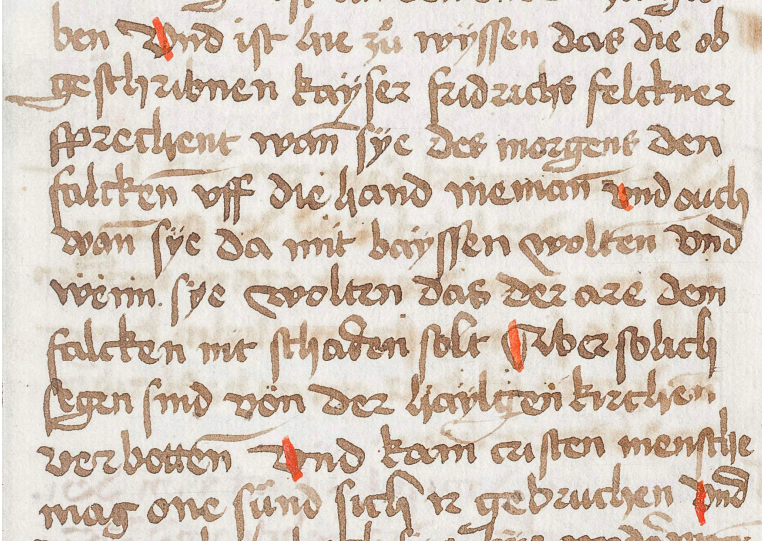 ben Vnd ist hie zů wyssen das die ob
geschribnen kayser fridrichs felckner
sprechent wan̄ sÿe des morgens den
falcken vff die hand nieman̄ vnd ouch
wan̄ sÿe da mit bayssen wolten Vnd
wenn sÿe wolten das der are dem
falcken nit schaden solt Aber solich
segen sind von der hayligen kirchen
verbotten Vnd kain cristen mensche
mag one sünd sich ir gebruchen Vnd